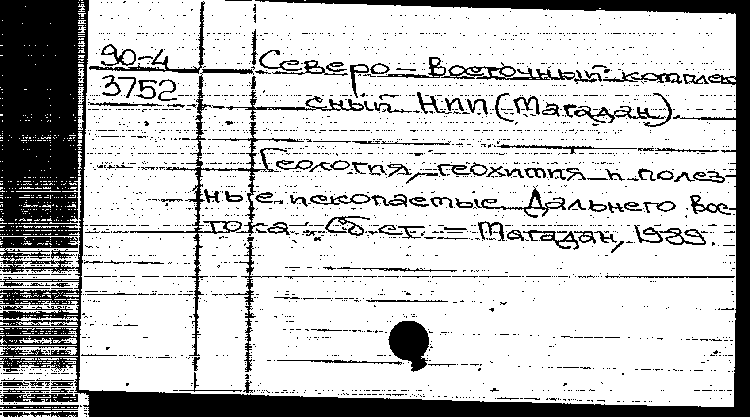 90-4
3752
Северо - Восточный комплек
сный НИИ (Магадан).
Геология, геохимия и полез-
ные ископаемые Дальнего Вос-
тока : Сб. ст. - Магадан, 1989.